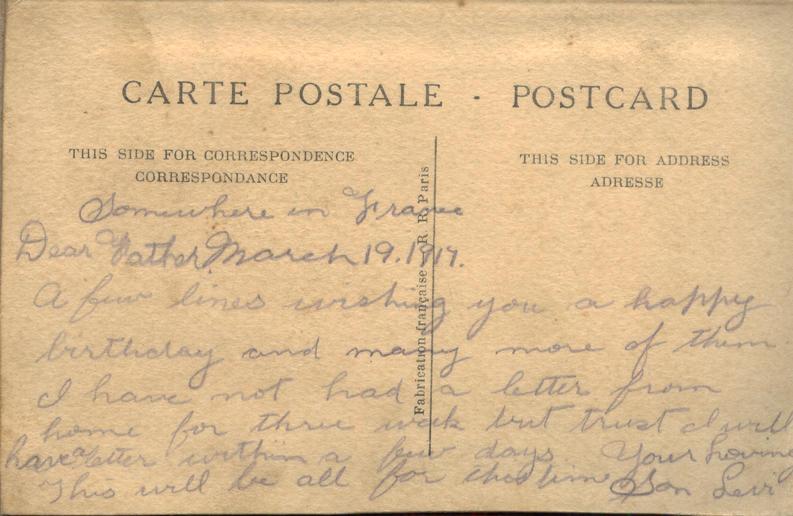 CARTE POSTALE - POSTCARD
THIS SIDE FOR CORRESPONDENCE
CORRESPONDANCE
THIS SIDE FOR ADDRESS
ADRESSE
Fabrication française - R. R. Paris
Somewhere in France
Dear Father March 19. 1917.
A few lines wishing you a happy
birthday and many more of them
I have not had a letter from
home for three week but trust I will
have a letter within a few days Your Loving
This will be all for this time Son Levi